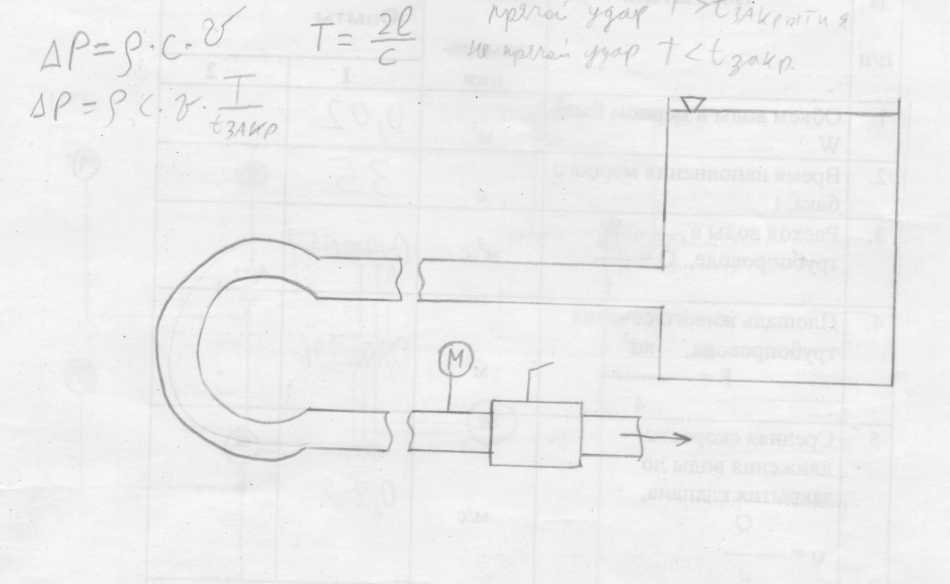 ΔP = ρ · c · v
T = 2l/c
прямой удар T > tзакрытия
не прямой удар T < tзакр.
ΔP = ρ c · v · T/tзакр
M
1
2
1. Объем воды в мерном баке,
W
м³
0,02
2. Время наполнения мерного
бака, t
с
3. Расход воды в
трубопроводе, Q =
4. Площадь живого сечения
трубопровода,
5. Средняя скорость
движения воды до
закрытия клапана,
м/с
Q